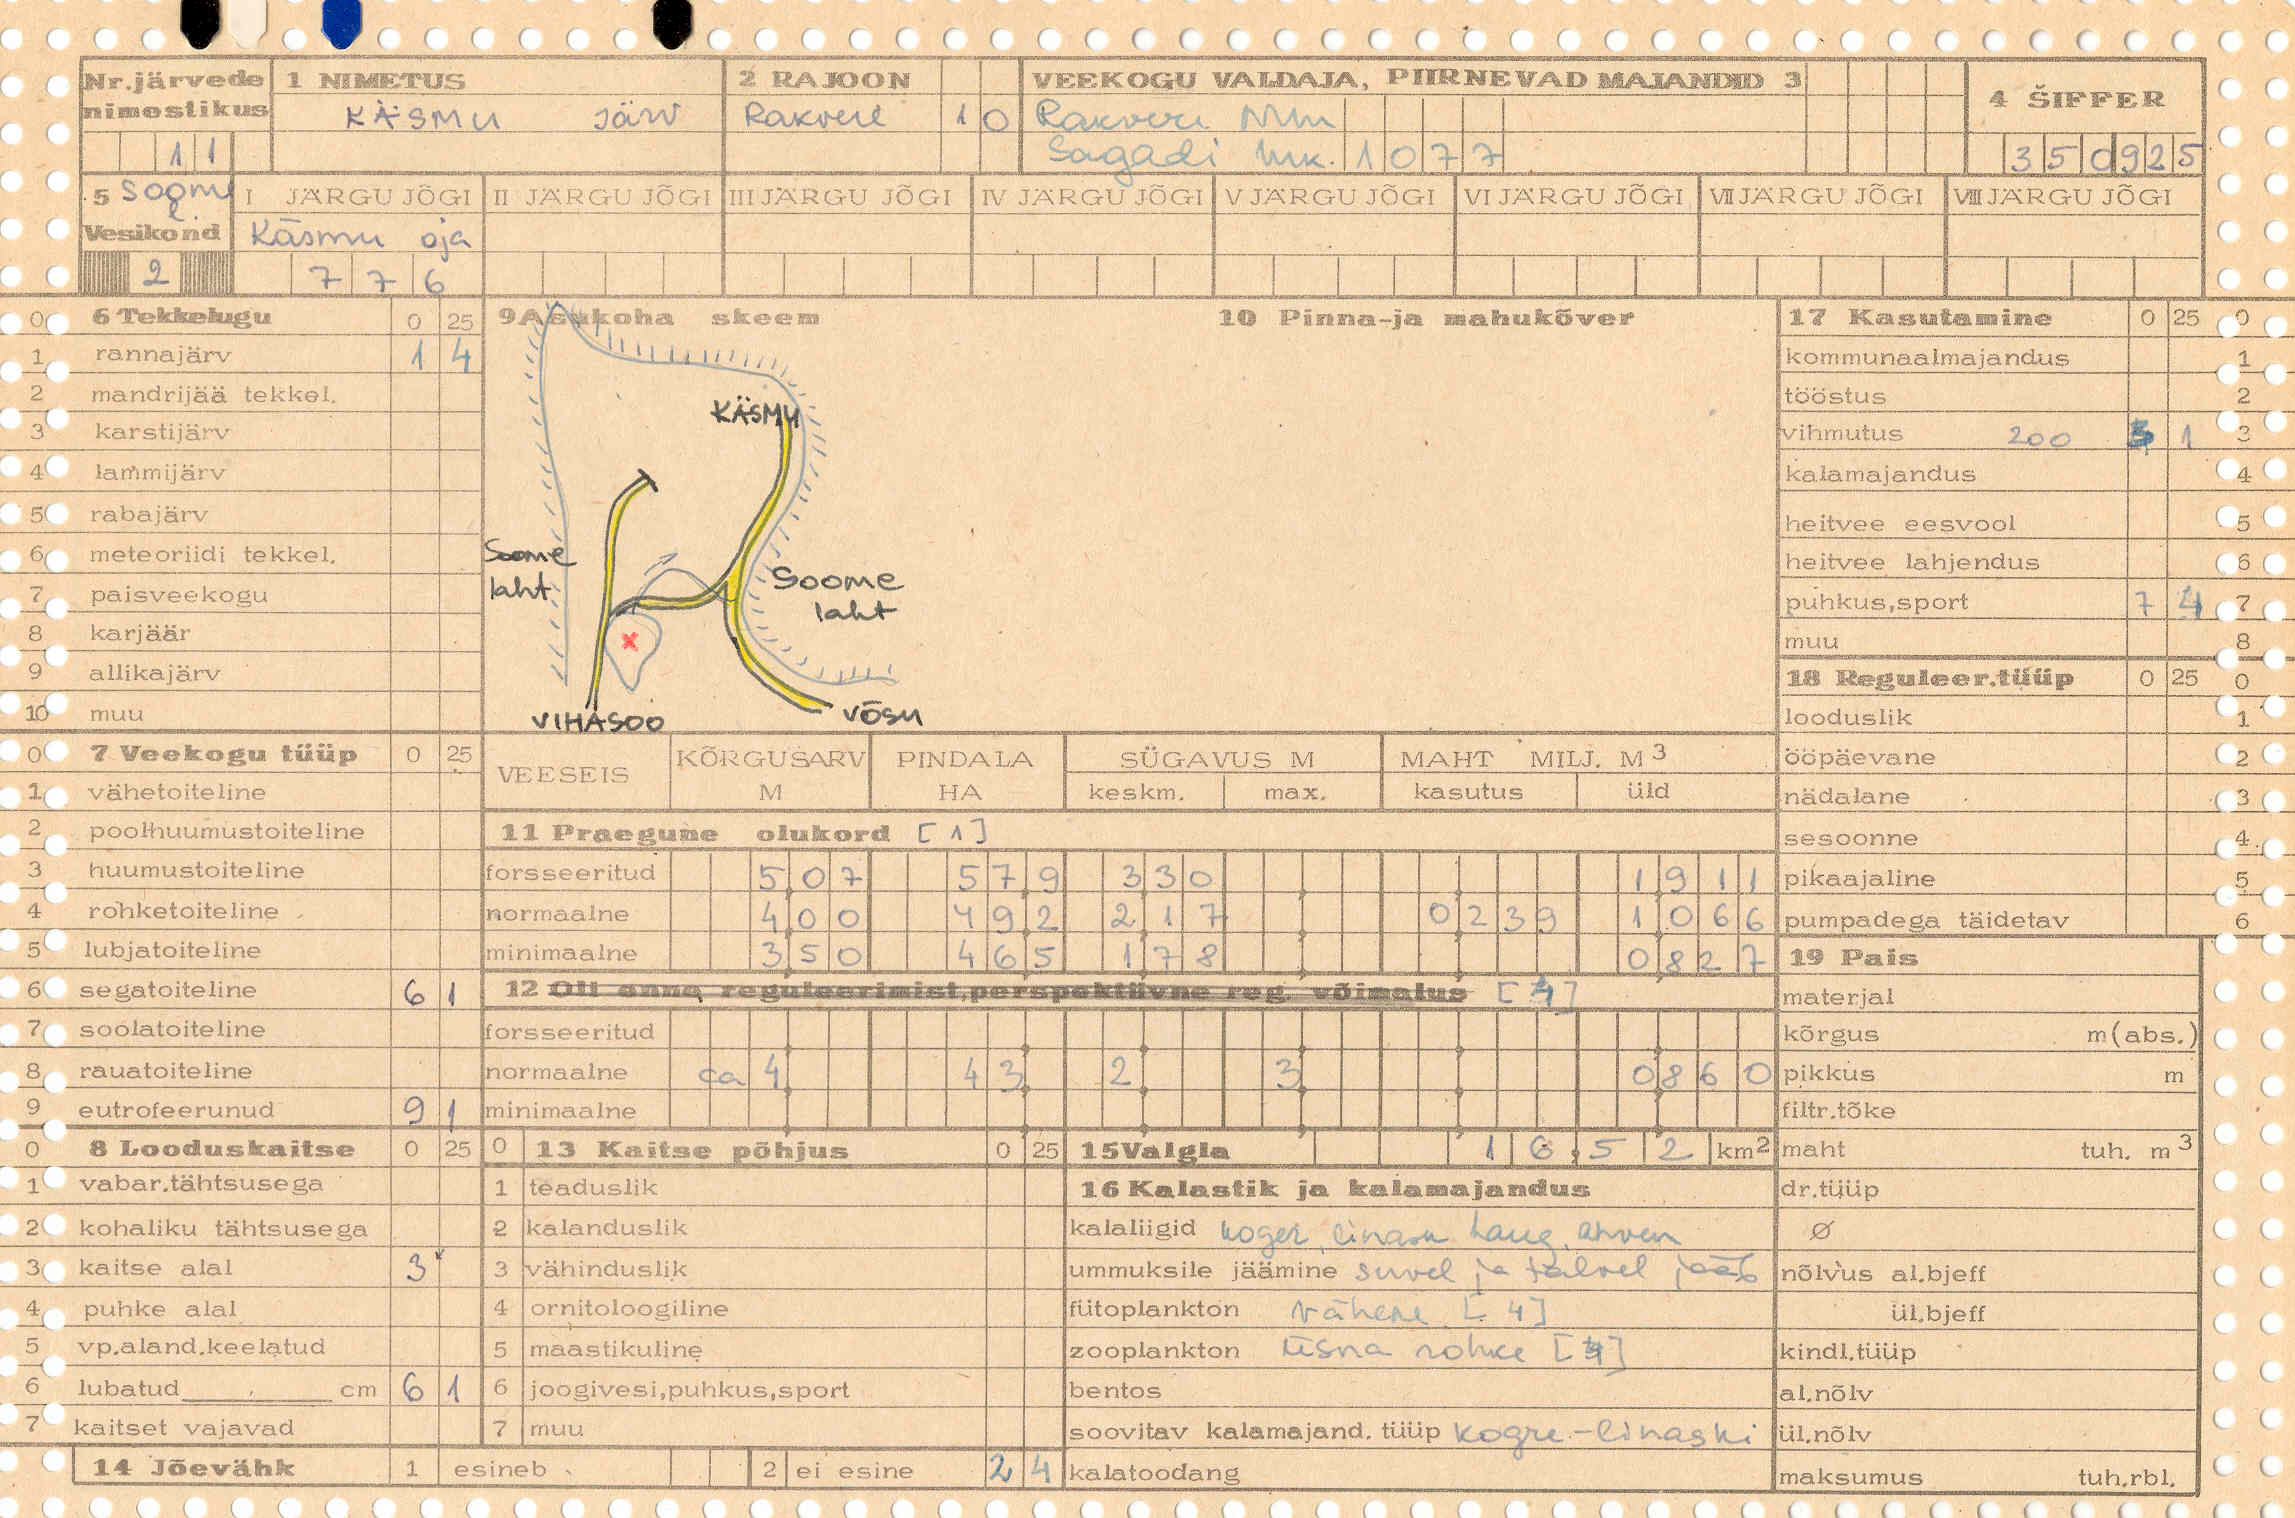 Nr.järvede nimestikus
11
1 NIMETUS
KÄSMU JÄRV
2 RAJOON
Rakvere 10
VEEKOGU VALDAJA, PIIRNEVAD MAJANDID 3
Rakvere MM
Sagadi mk. 1077
4 ŠIFFER
350925
5 Soome l.
Vesikond
2
I JÄRGU JÕGI
Käsmu oja
776
II JÄRGU JÕGI
III JÄRGU JÕGI
IV JÄRGU JÕGI
V JÄRGU JÕGI
VI JÄRGU JÕGI
VII JÄRGU JÕGI
VIII JÄRGU JÕGI
0 6 Tekkelugu 0 25
1 rannajärv 1 4
2 mandrijää tekkel.
3 karstijärv
4 lammijärv
5 rabajärv
6 meteoriidi tekkel.
7 paisveekogu
8 karjäär
9 allikajärv
10 muu
0 7 Veekogu tüüp 0 25
1 vähetoiteline
2 poolhuumustoiteline
3 huumustoiteline
4 rohketoiteline
5 lubjatoiteline
6 segatoiteline 6 1
7 soolatoiteline
8 rauatoiteline
9 eutrofeerunud 9 1
0 8 Looduskaitse 0 25
1 vabar.tähtsusega
2 kohaliku tähtsusega
3 kaitse alal 3
4 puhke alal
5 vp.aland.keelatud
6 lubatud cm 6 1
7 kaitset vajavad
9 Asukoha skeem
KÄSMU
Soome laht
Soome laht
VIHASOO
VÕSU
10 Pinna-ja mahukõver
VEESEIS
KÕRGUSARV M
PINDALA HA
SÜGAVUS M
keskm. max.
MAHT MILJ. M3
kasutus üld
11 Praegune olukord [1]
forsseeritud 507 579 330 1911
normaalne 400 492 217 0239 1066
minimaalne 350 465 178 0827
12 Oli enne reguleerimist,perspektiivne reg. võimalus [4]
forsseeritud
normaalne ca 4 43 2 3 0860
minimaalne
0 13 Kaitse põhjus 0 25
1 teaduslik
2 kalanduslik
3 vähinduslik
4 ornitoloogiline
5 maastikuline
6 joogivesi,puhkus,sport
7 muu
14 Jõevähk 1 esineb 2 ei esine 2 4
15 Valgla 16,52 km2
16 Kalastik ja kalamajandus
kalaliigid koger, linask haug, ahven
ummuksile jäämine suvel ja talvel jääb
fütoplankton vähene [4]
zooplankton üsna rohke [4]
bentos
soovitav kalamajand. tüüp kogre-linaski
kalatoodang
17 Kasutamine 0 25 0
kommunaalmajandus 1
tööstus 2
vihmutus 200 3 1 3
kalamajandus 4
heitvee eesvool 5
heitvee lahjendus 6
puhkus,sport 7 4 7
muu 8
18 Reguleer.tüüp 0 25 0
looduslik 1
ööpäevane 2
nädalane 3
sesoonne 4
pikaajaline 5
pumpadega täidetav 6
19 Pais
materjal
kõrgus m(abs.)
pikkus m
filtr.tõke
maht tuh. m3
dr.tüüp
Ø
nõlvus al.bjeff
ül.bjeff
kindl.tüüp
al.nõlv
ül.nõlv
maksumus tuh.rbl.